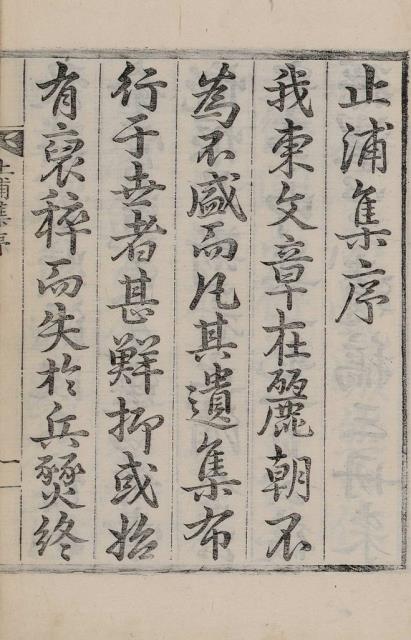 止浦集序
我東文章在麗朝不
為不盛而凡其遺集布
行于世者甚鮮抑或始
有裒稡而失於兵燹終
止浦集序
一